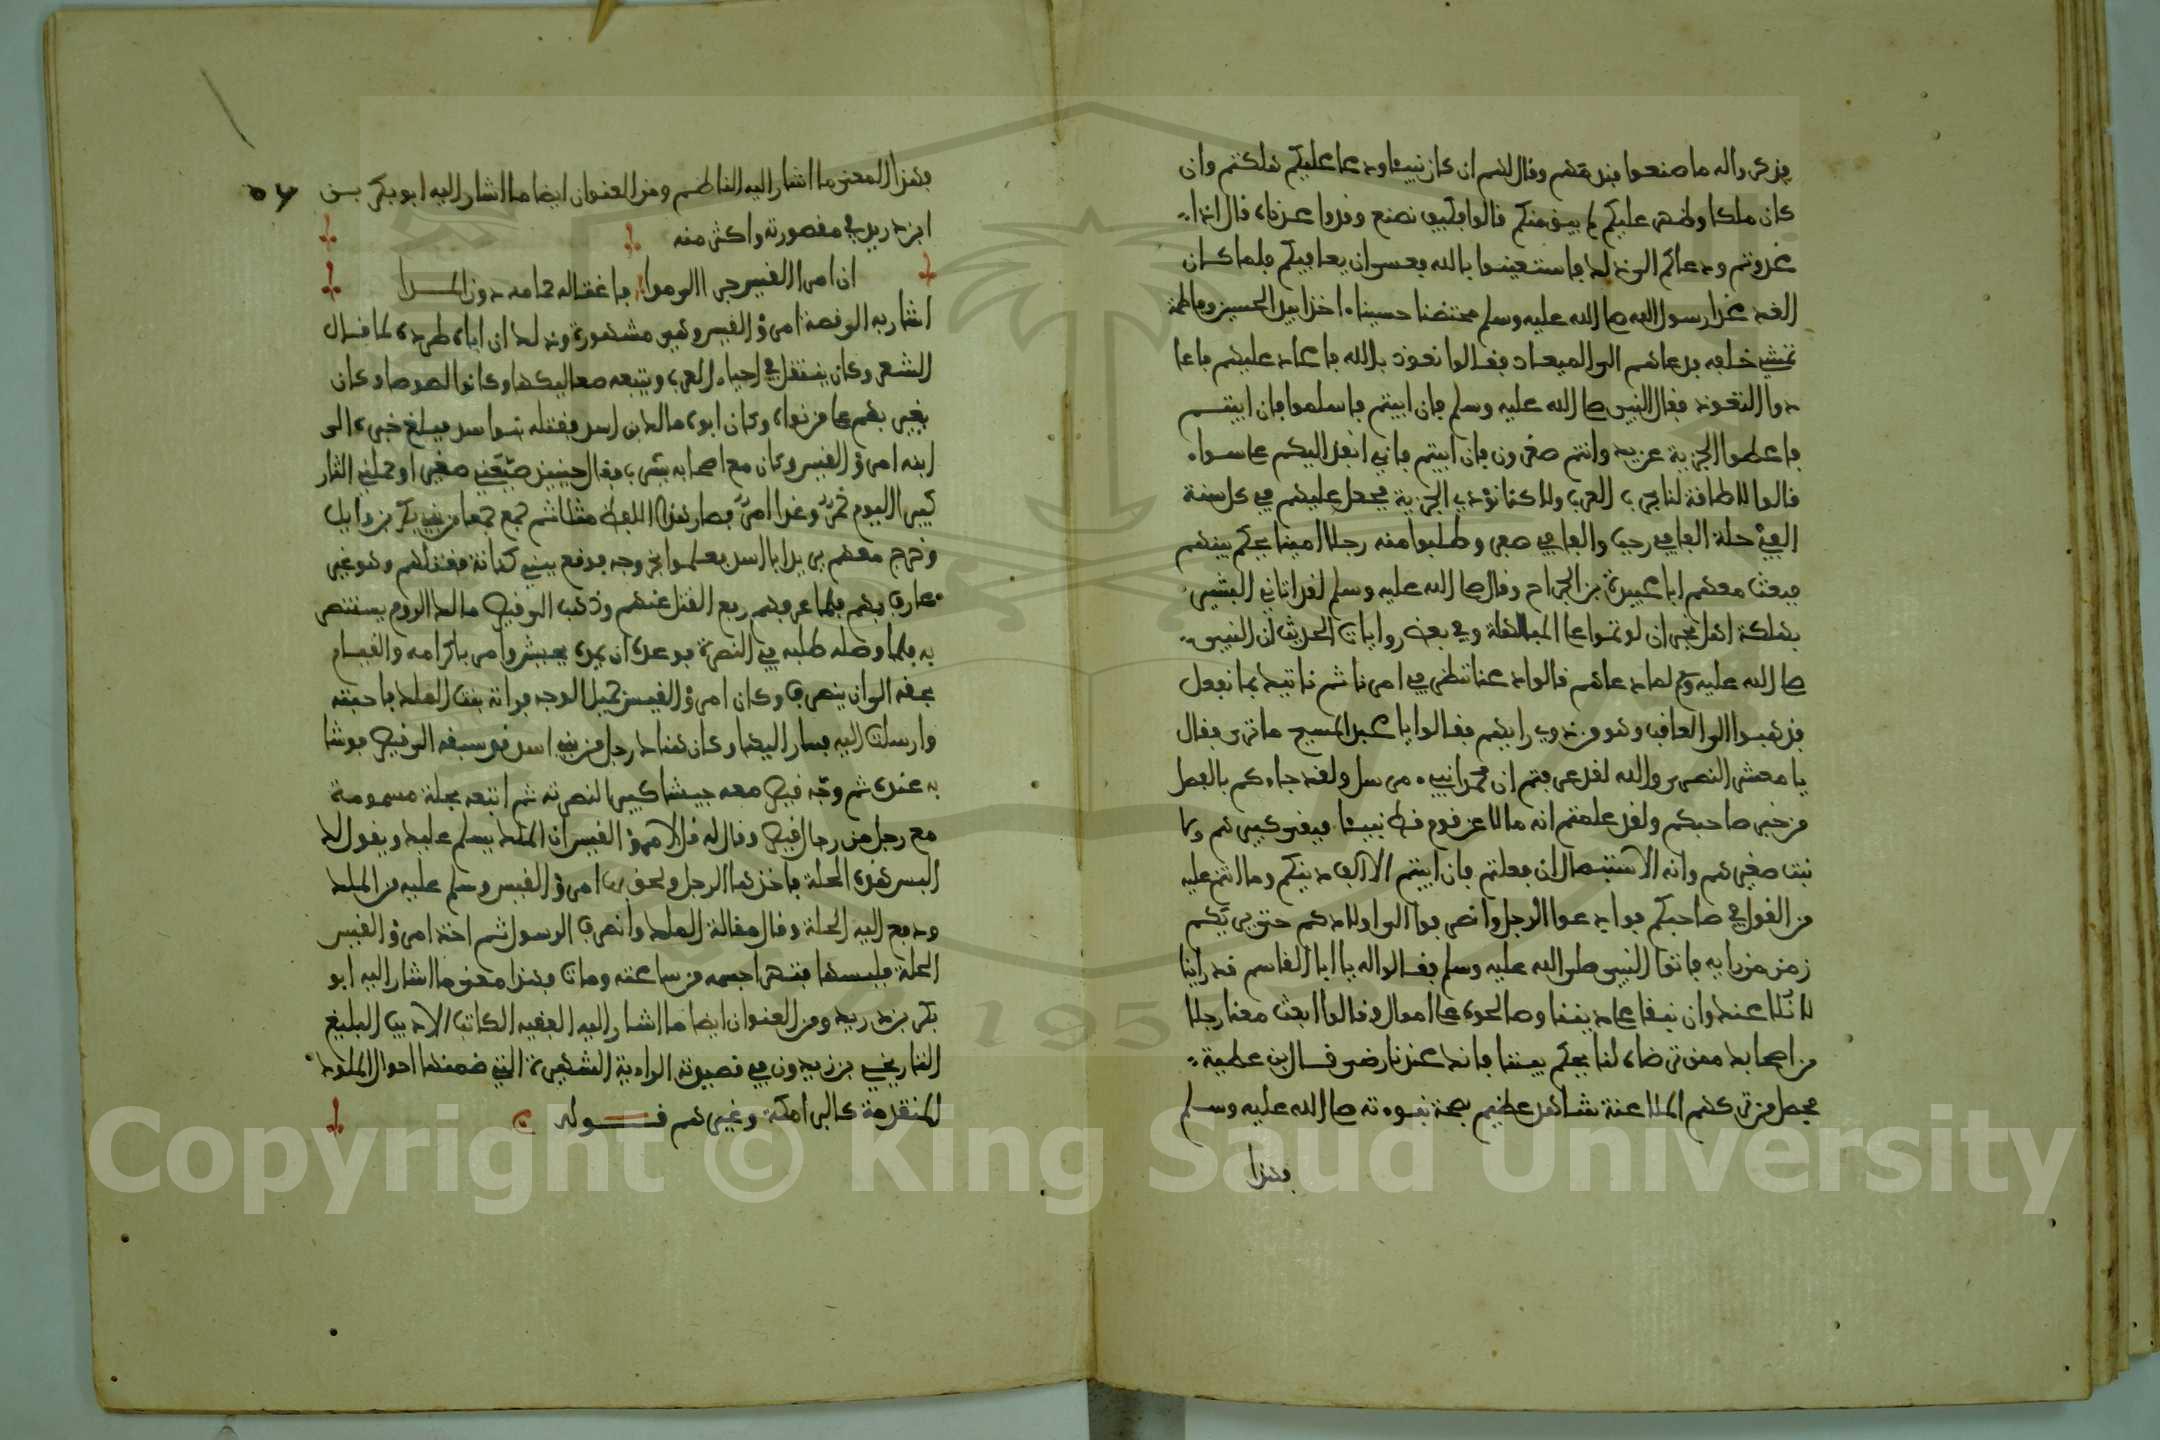 فذكروا له ما صنعوا فندمهم وقال لهم ان كان نبيا ودعا عليكم هلكتم وان
كان ملكا وظهر عليكم لم يبق منكم قالوا فكيف نصنع وقدوا عدناه قال اذا
غدوتم ودعاكم الى ذلك فاستعينوا بالله فعسى ان يعافيكم فلما كان
الغد غدا رسول الله صلى الله عليه وسلم محتضنا حسينا اخذا بيد الحسن وفاطمة
تمشي خلفه فدعاهم الى الميعاد فقالوا نعوذ بالله فاعاد عليهم فاعا
دوا التعوذ فقال النبي صلى الله عليه وسلم فان ابيتم فاسلموا فان ابيتم
فاعطوا الجزية عن يد وانتم صغرون فان ابيتم فاني انبذ اليكم على سواء
قالوا لا طاقة لنا بحرب العرب ولاكنا نؤدي الجزية فجعل عليهم في كل سنة
الفي حلة الفا في رجب والفا في صفر وطلبوا منه رجلا امينا يحكم بينهم
فبعث معهم ابا عبيدة بن الجراح وقال صلى الله عليه وسلم لقد اتاني البشير
بهلكة اهل نجران لو تموا على المباهلة وفي بعض روايات الحديث ان النبي
صلى الله عليه وسلم لما دعاهم قالوا دعنا ننظر في امرنا ثم ناتيك بما نفعل
فذهبوا الى العاقب وهو من ذوي رايهم فقالوا يا عبد المسيح ما ترى فقال
يا معشر النصرى والله لقد عرفتم ان محمدا نبيء مرسل ولقد جاءكم بالفصل
من خبر صاحبكم ولقد علمتم انه ما لاعن قوم قط نبيا فيبقى كبيرهم ولا
نبت صغيرهم وانه الاستئصال ان فعلتم فان ابيتم الا الف دينكم وما انتم عليه
من القول في صاحبكم فوادعوا الرجل وانصرفوا الى اولادكم حتى يريكم
زمن من رايه فاتوا النبي صلى الله عليه وسلم فقالوا له يا ابا القاسم قد راينا
لا نلاعنك وان نبقى على ديننا وصالحوه على اموال وقالوا ابعث معنا رجلا
من اصحابك ممن ترضاه لنا يحكم بيننا فانك عندنا رضى قال ابن عطية
فحصل من تركهم الملاعنة شاهد عظيم بصحة نبوءته صلى الله عليه وسلم
فهذا
فهذا المعنى ما اشار اليه الناظم ومن العنوان ايضا ما اشار اليه ابو بكر بن
ابن دريد في مقصورته واكثر منه
ان امرا القيس جرى الى مدا فاعتاقه حمامه دون المدا
اشار به الى قصة امرؤ القيس وهي مشهورة وذلك ان اباه طرده لما قال
الشعر وكان يتنقل في احياء العرب ويتبعه صعاليكها وكانوا لصوصا وكان
يغير بهم على من نواه وكان ابوه مالك بن اسد فقتله بنوا سد فبلغ خبره الى
ابنه امرؤ القيس وكان مع اصحابه يشرب فقال حينئذ ضيعني صغيرا وحملني الثار
كبيرا اليوم خمر وغدا امر فصار هذا اللفظ مثلا ثم جمع جمعا من بني بكر بن وايل
وخرج معهم يريد ابا اسد فعلموا بخروجه فدفع ببني كنانة فقتلهم وهو غير
عارف بهم فلما عرفهم رفع القتل عنهم وذهب الى قيصر مالك الروم يستنصر
به فلما وصله طلبه في النصرة فوعده ان يمده بجيش وامر باكرامه والقيام
بحقه الى ان ينصرف وكان امرؤ القيس جميل الوجه فراته بنت الملك فاحبته
وارسلت اليه فسار اليها وكان هناك رجل من بني اسد قد سبقه الى قيصر فوشا
به عنده ثم وجه قيصر معه جيشا كبيرا لنصرته ثم اتبعه بحلة مسمومة
مع رجل من رجال قيصر وقال له قل لامرؤ القيس ان الملك يسلم عليك ويقول لك
البس هذه الحلة فاخذها الرجل ولحق امرؤ القيس وسلم عليه من الملك
ودفع اليه الحلة وقال مقالة الملك وانصرف الرسول ثم اخذ امرؤ القيس
الحلة فلبسها فتهرا جسمه من ساعته ومات فهذا معنى ما اشار اليه ابو
بكر بن دريد ومن العنوان ايضا ما اشار اليه الفقيه الكاتب الاديب البليغ
التاريخي بن زيدون في قصيدته الرائية الشهيرة التي ضمنها احوال الملوك
المتقدمة كالبرامكة وغيرهم قوله
Copyright © King Saud University
1957